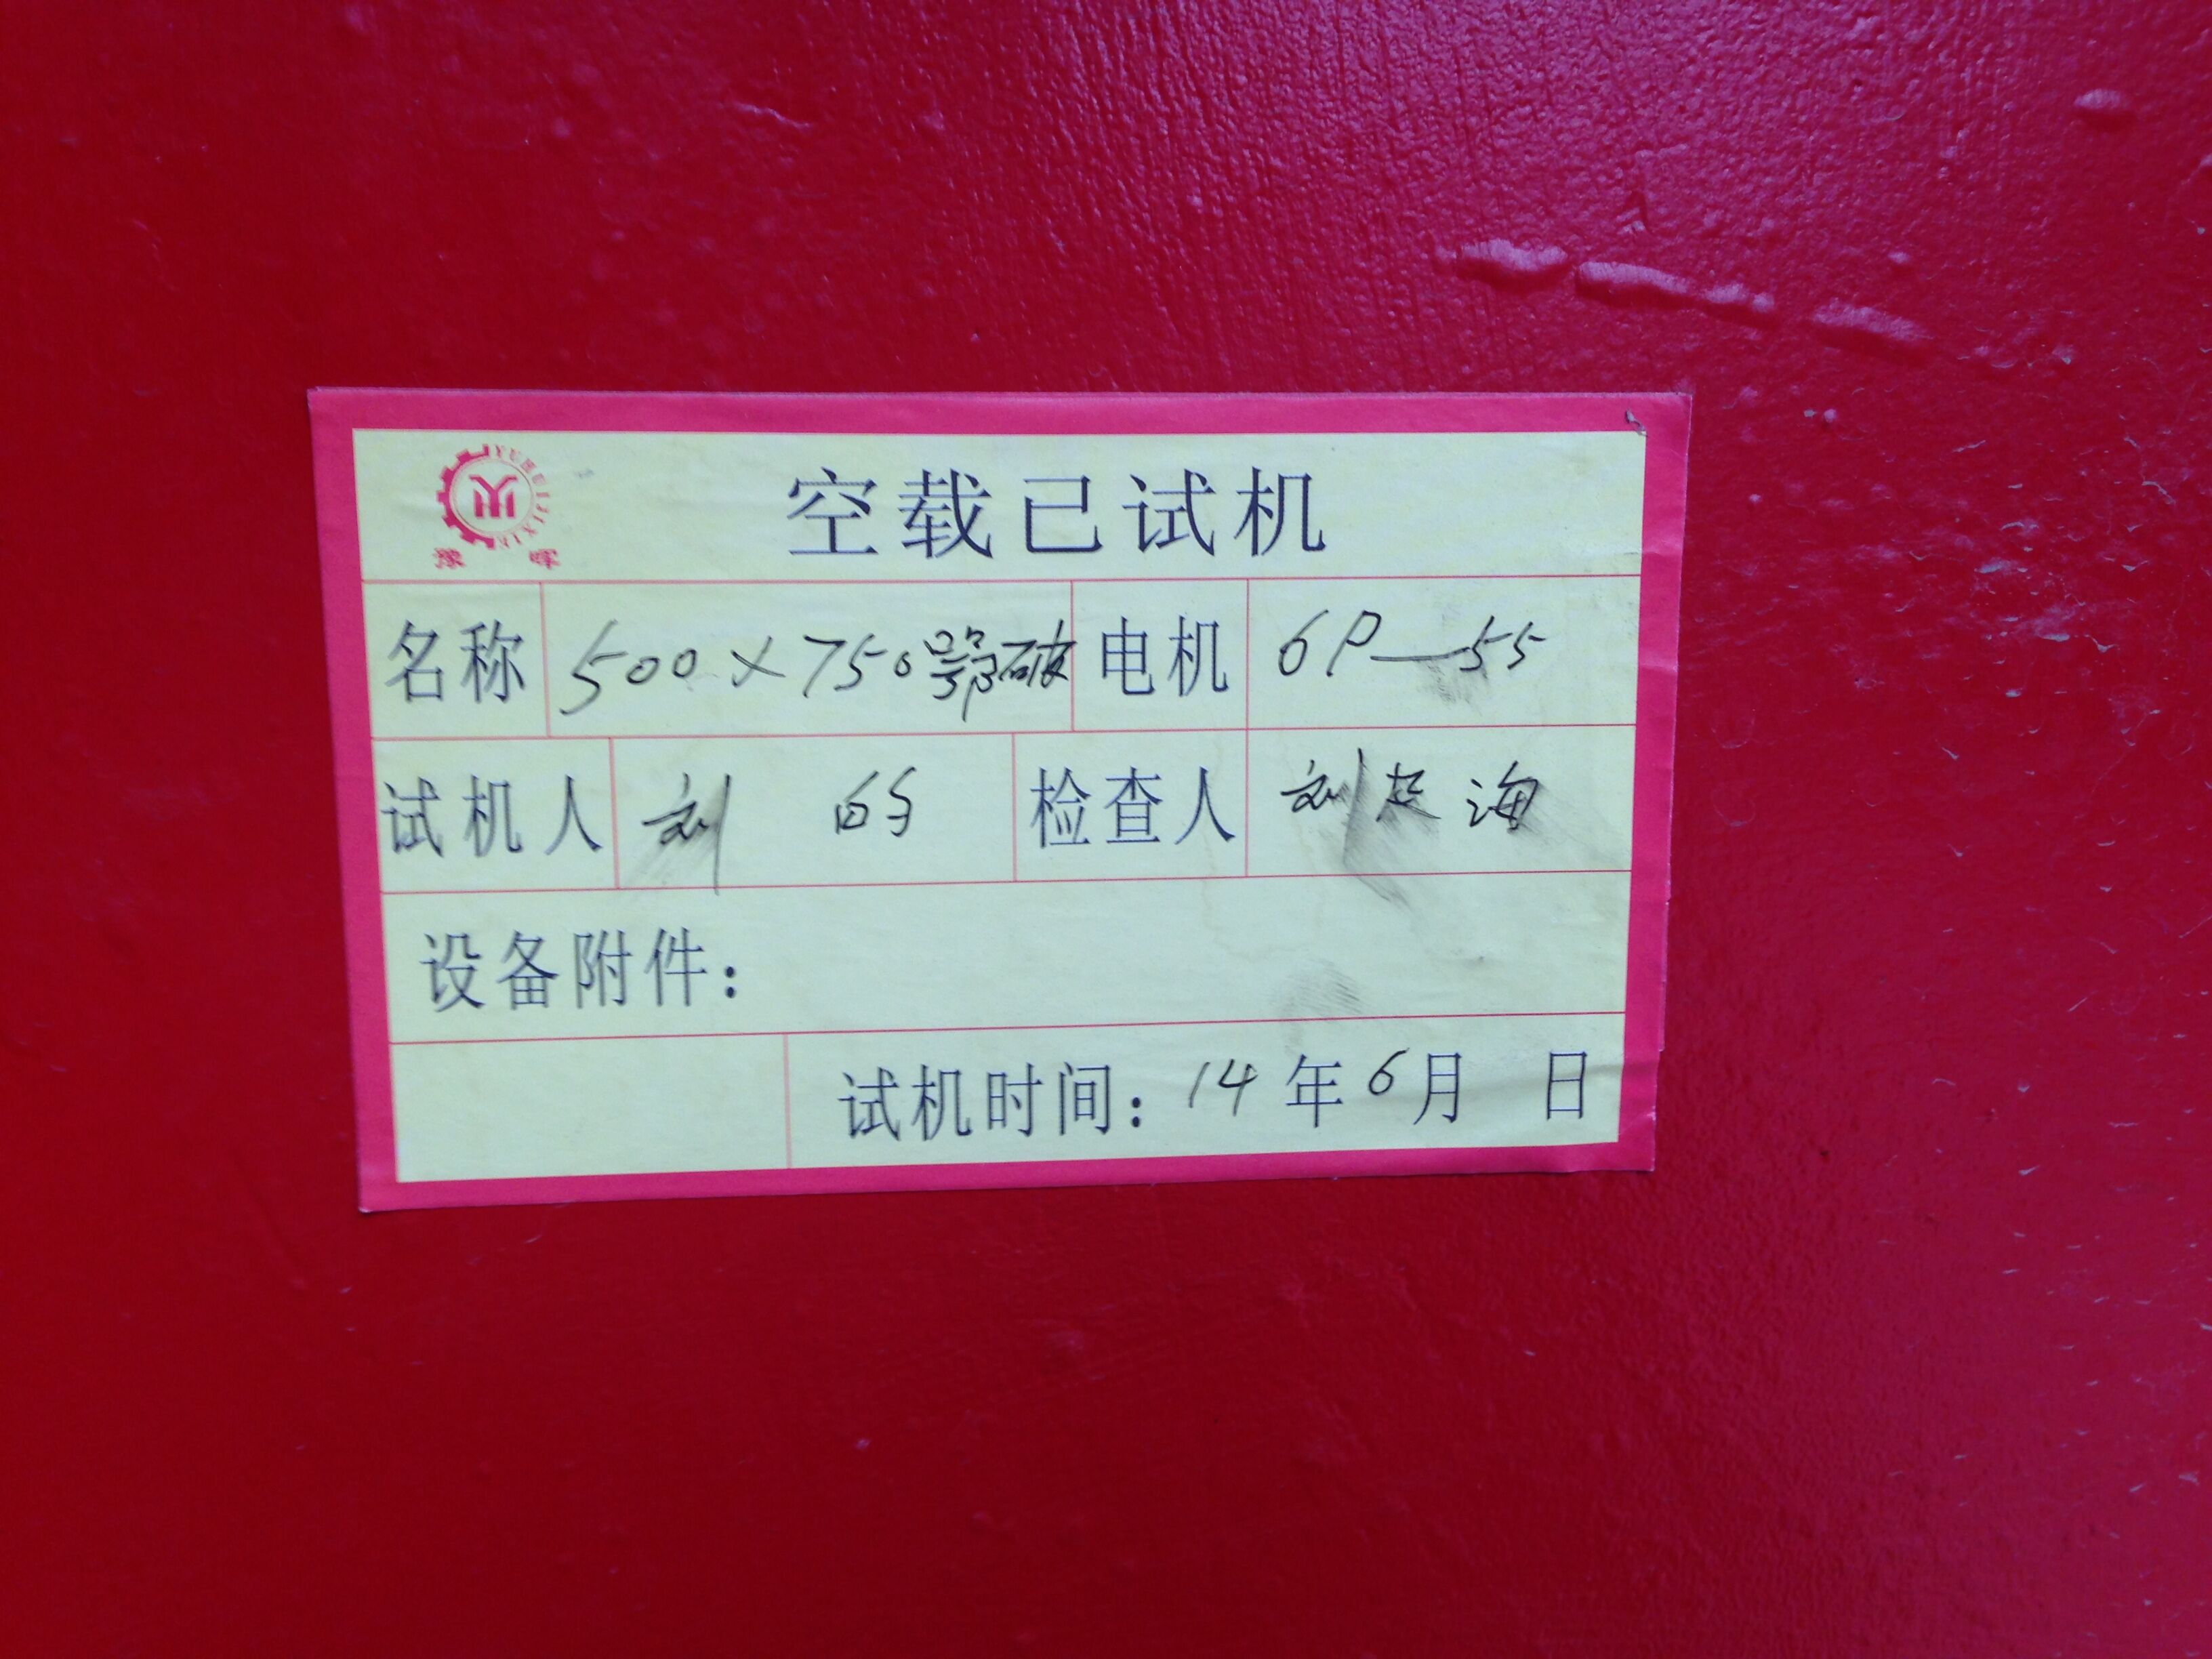 YUHUIJIXIE
豫晖
空载已试机
名称 500×750鄂破 电机 6P—55
试机人 刘 检查人 刘 海
设备附件：
试机时间：14年6月 日